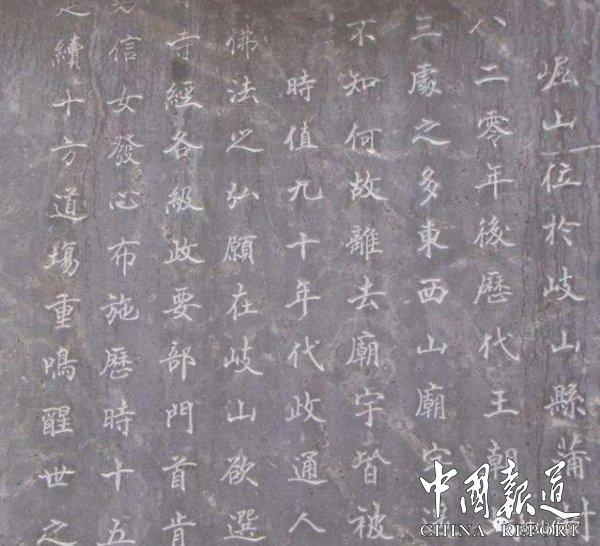 崛山位於岐山縣蒲村
八二零年後歷代王朝
三處之多東西山廟宇
不知何故離去廟宇皆被
時值九十年代政通人
佛法之弘願在岐山欲選
寺經各級政要部門首肯
信女發心布施歷時十五
續十方道場重鳴醒世之
中國報道
CHINA REPORT